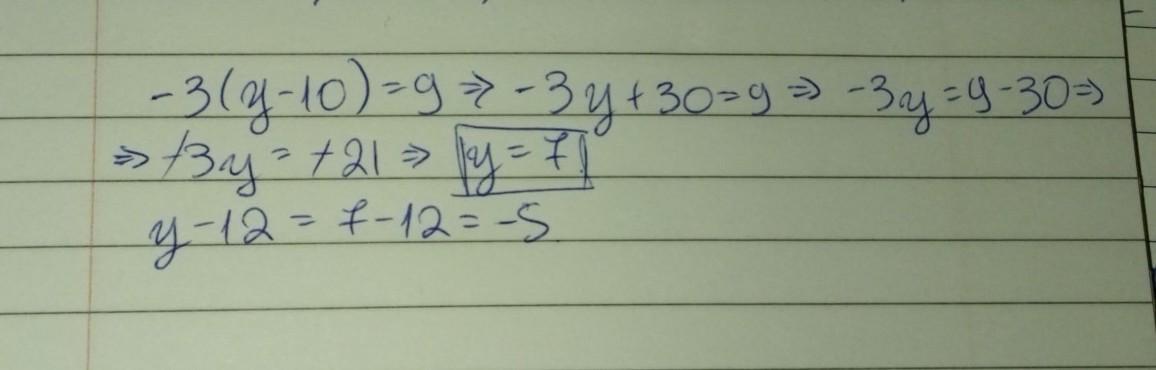 -3(y-10)=9 ⇒ -3y+30=9 ⇒ -3y=9-30⇒
⇒ +3y = +21 ⇒ |y=7|
y-12 = 7-12=-5